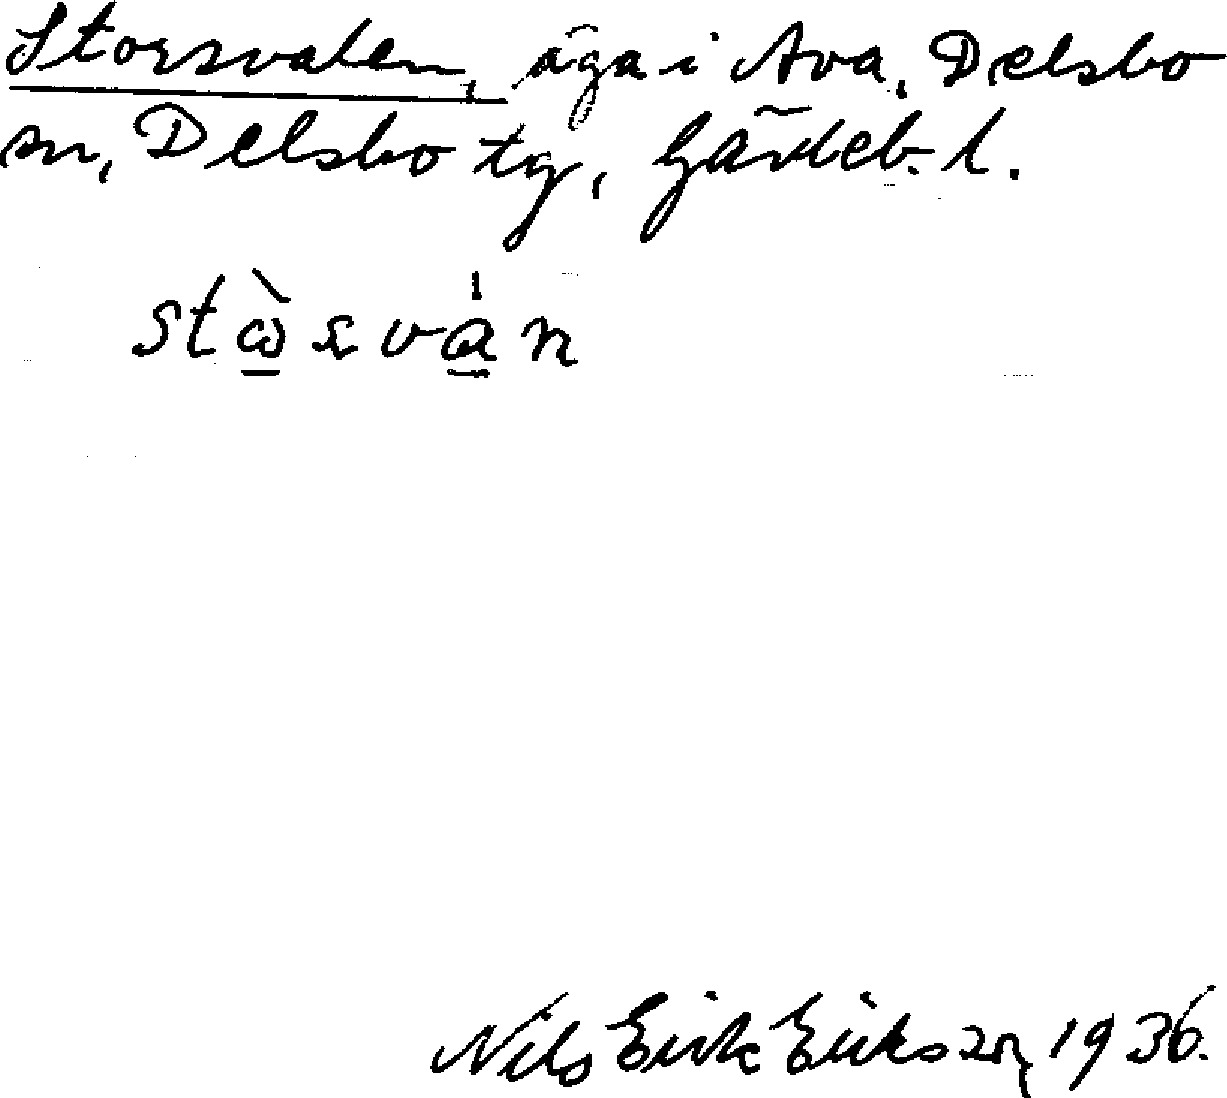 Storsvalen, äga i Ava, Delsbo
sn, Delsbo tg, Gävleb. l.
stὼ̠sva̠̍n
Nils Erik Eriksson, 1936.